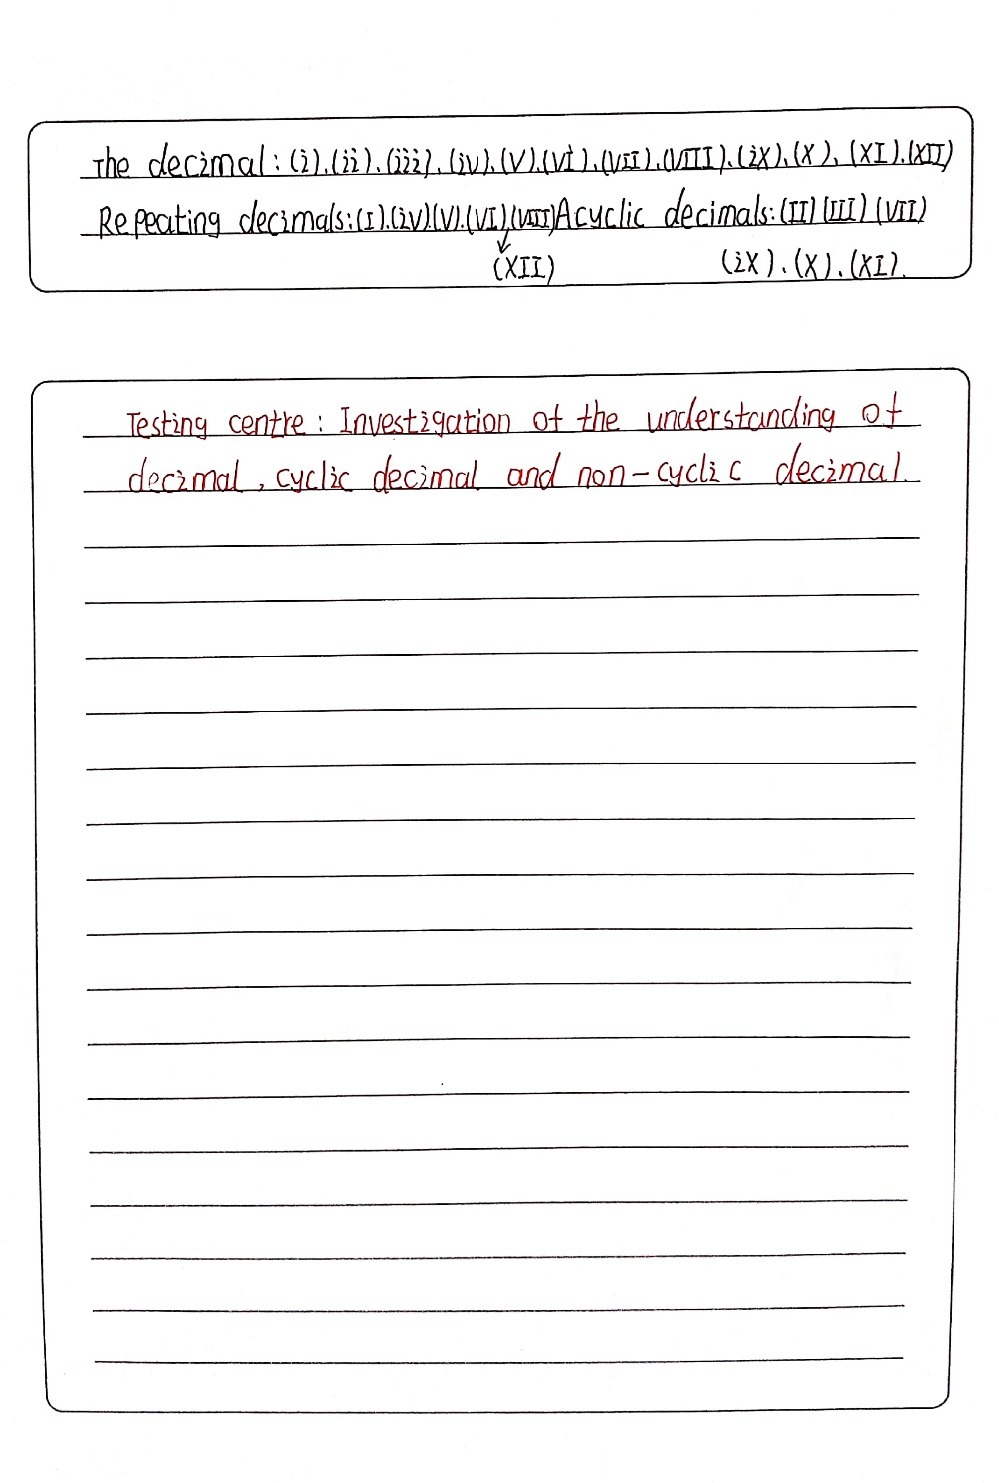 The decimal: (i).(ii).(iii).(iv).(V).(Vi).(VII).(VIII).(iX).(X).(XI).(XII)
Repeating decimals:(I).(iV)(V).(VI).(VIII)Acyclic decimals:(II)(III)(VII)
(XII) (iX).(X).(XI).
Testing centre: Investigation of the understanding of
decimal, cyclic decimal and non-cyclic decimal.